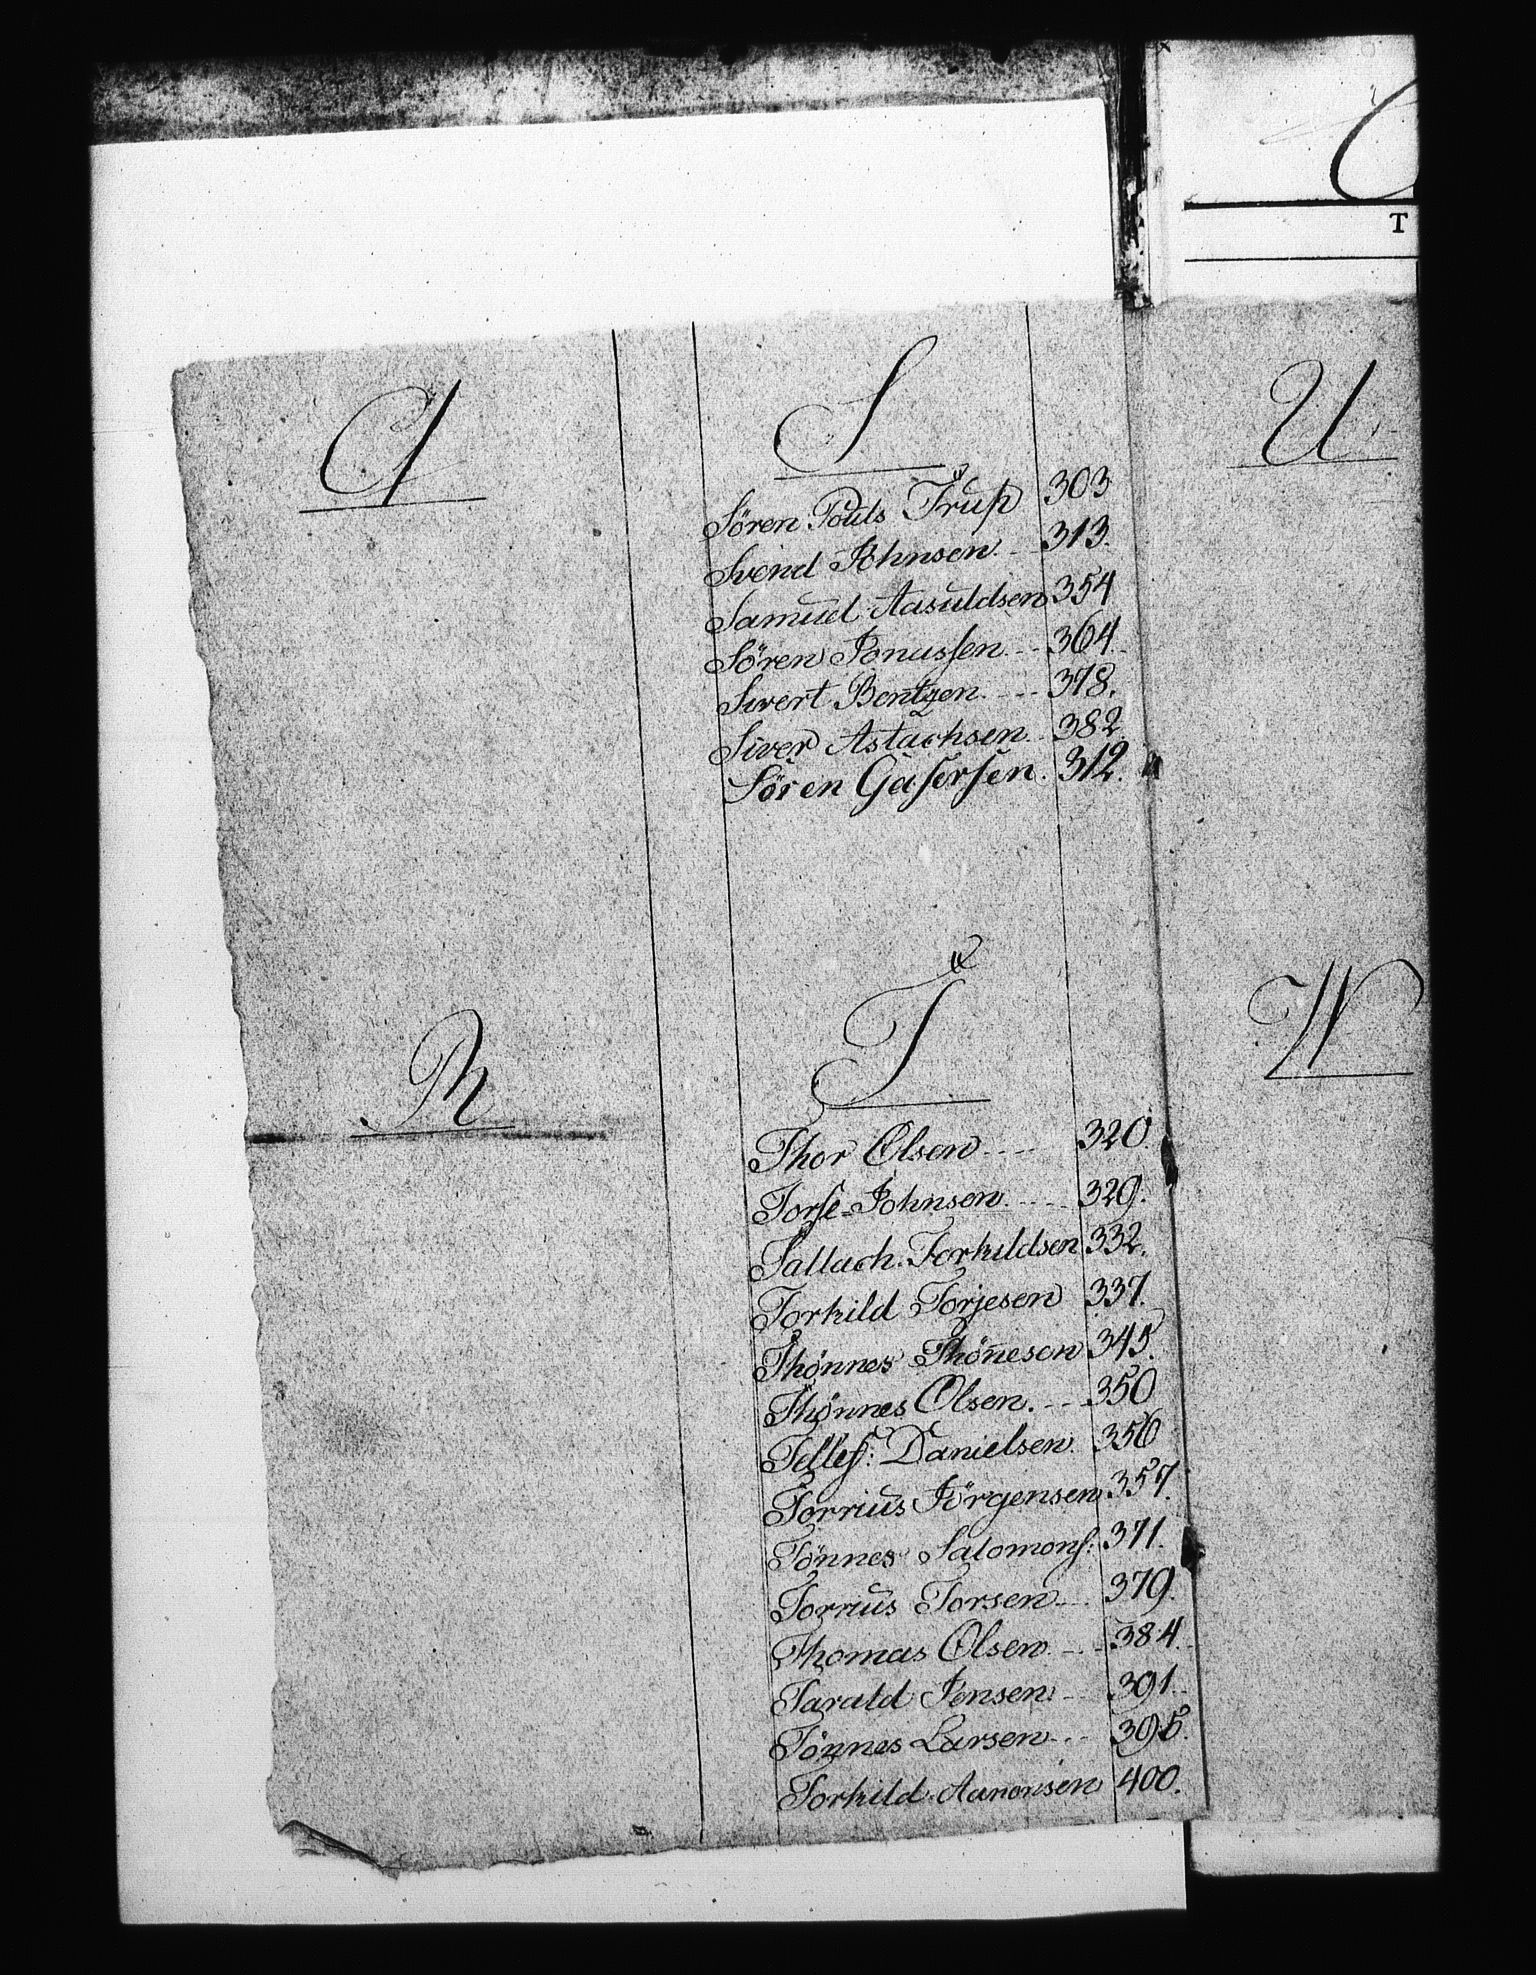 Q
R
S
Sören Pouls Trup 303
Svend Johnsen 313.
Samuel Aasuldsen 354
Sören Jonassen 364.
Sivert Bentzen 378.
Siver Astachsen 382.
Sören Gasersen. 312.
T
Thor Olsen 320.
Torje Johnsen 329.
Tallach Torkildsen 332.
Torkild Torjesen 337.
Thönnes Thönesen 345.
Thönnes Olsen. 350
Tellef: Danielsen 356
Torrius Jörgensen 357.
Tönnes Salomons: 371.
Torrius Torsen 379.
Thomas Olsen 384.
Tarald Jensen 391.
Tönnes Larsen 395.
Torkild Aanonsen 400.
U
W
T